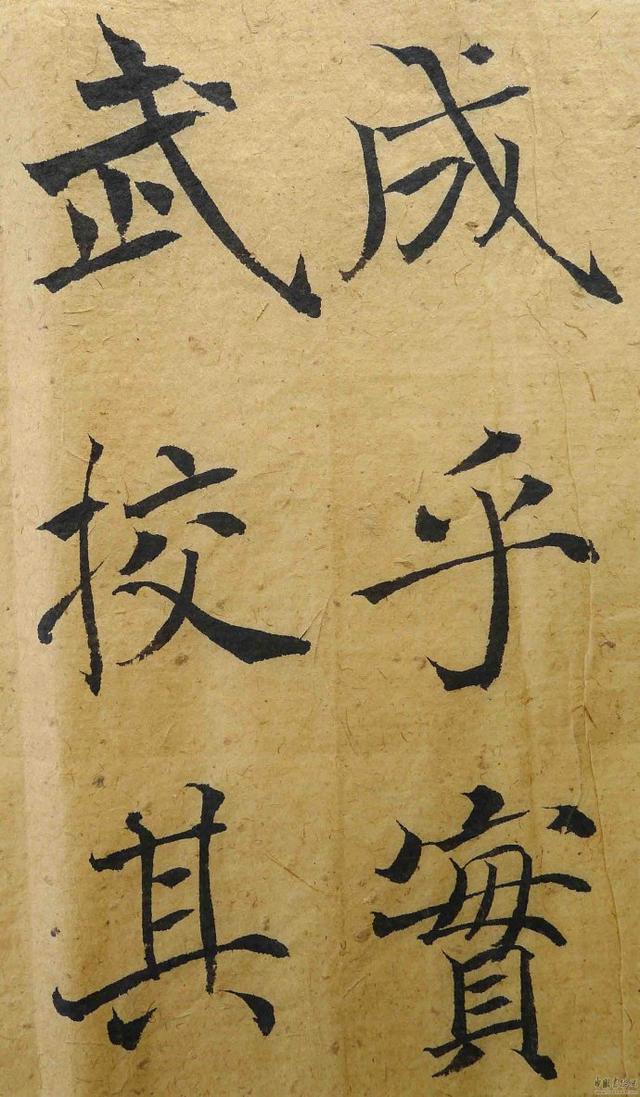 成乎實
武挍其